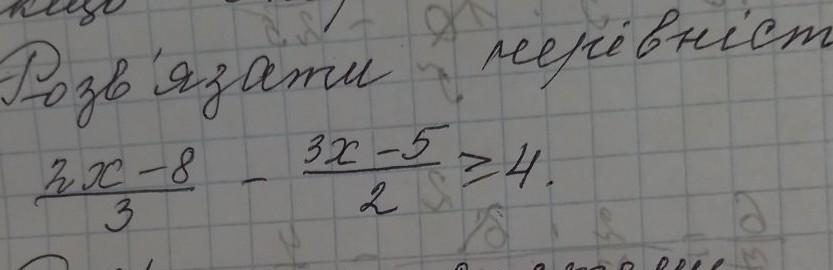 Розв'язати нерівніст
$\frac{2x-8}{3} - \frac{3x-5}{2} \geq 4.$